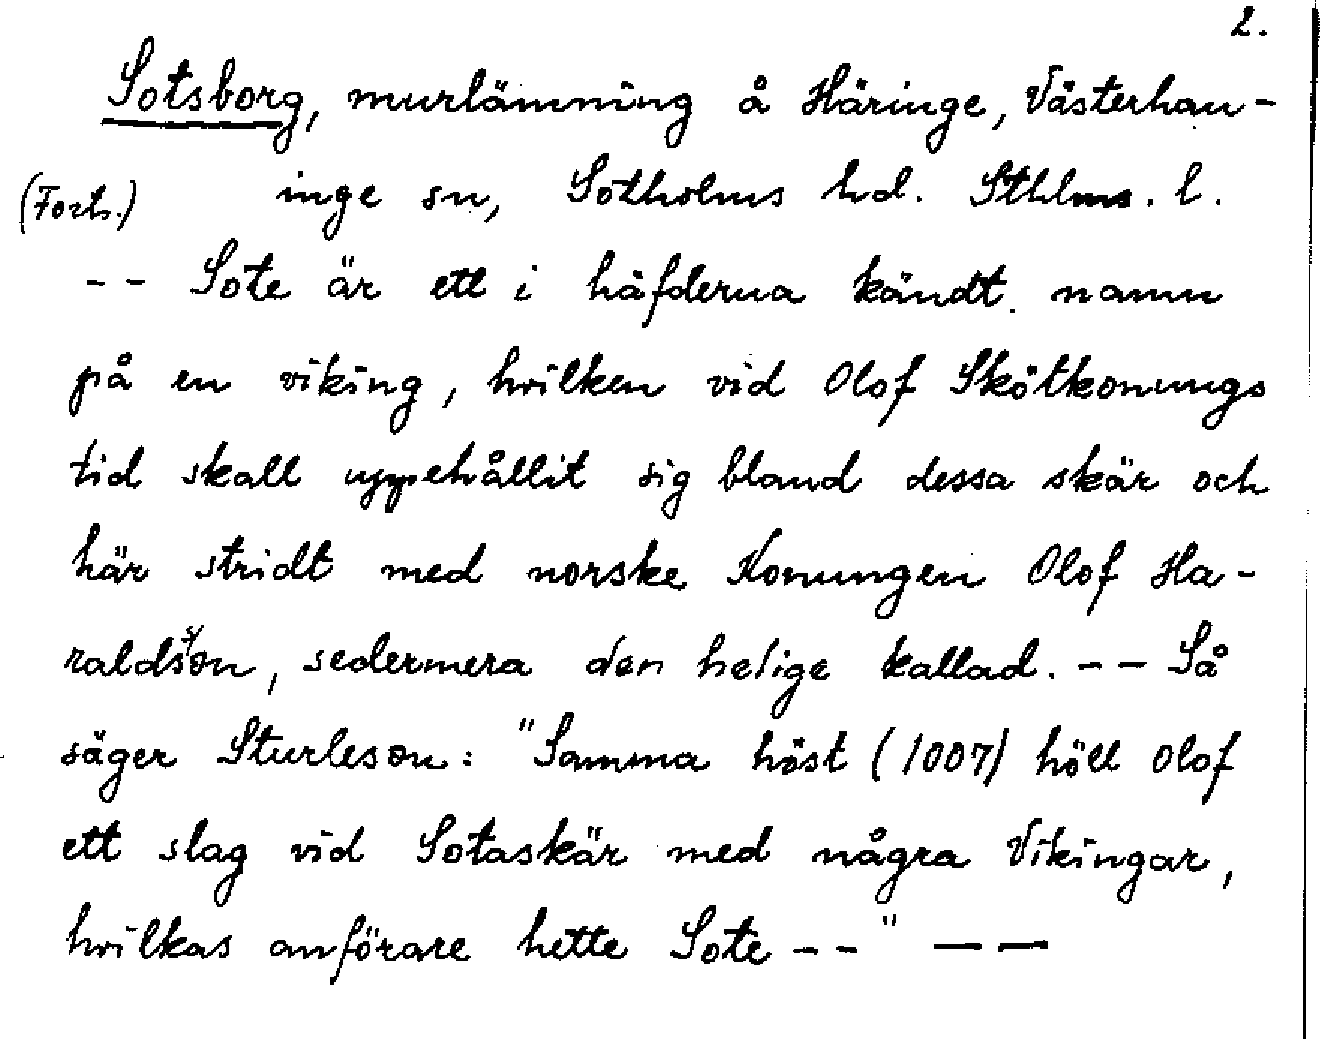 2.
Sotsborg, murlämning å Häringe, Västerhan-
(Forts.) inge sn, Sotholms hd. Sthlms. l.
-- Sote är ett i häfderna kändt namn
på en viking, hvilken vid Olof Skötkonungs
tid skall uppehållit sig bland dessa skär och
här stridt med norske Konungen Olof Ha-
raldsson, sedermera den helige kallad. -- Så
säger Sturleson: "Samma höst (1007) höll Olof
ett slag vid Sotaskär med några Vikingar,
hvilkas anförare hette Sote --" — —